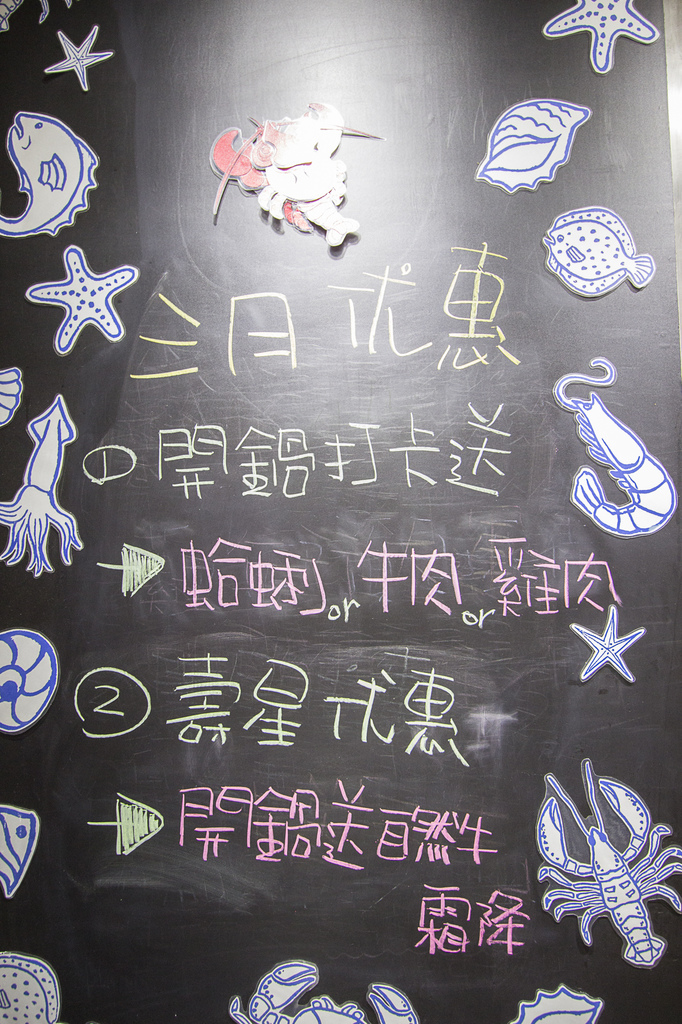 三月优惠
① 開鍋打卡送
蛤蜊or牛肉or雞肉
② 壽星优惠
開鍋送自然牛
霜降